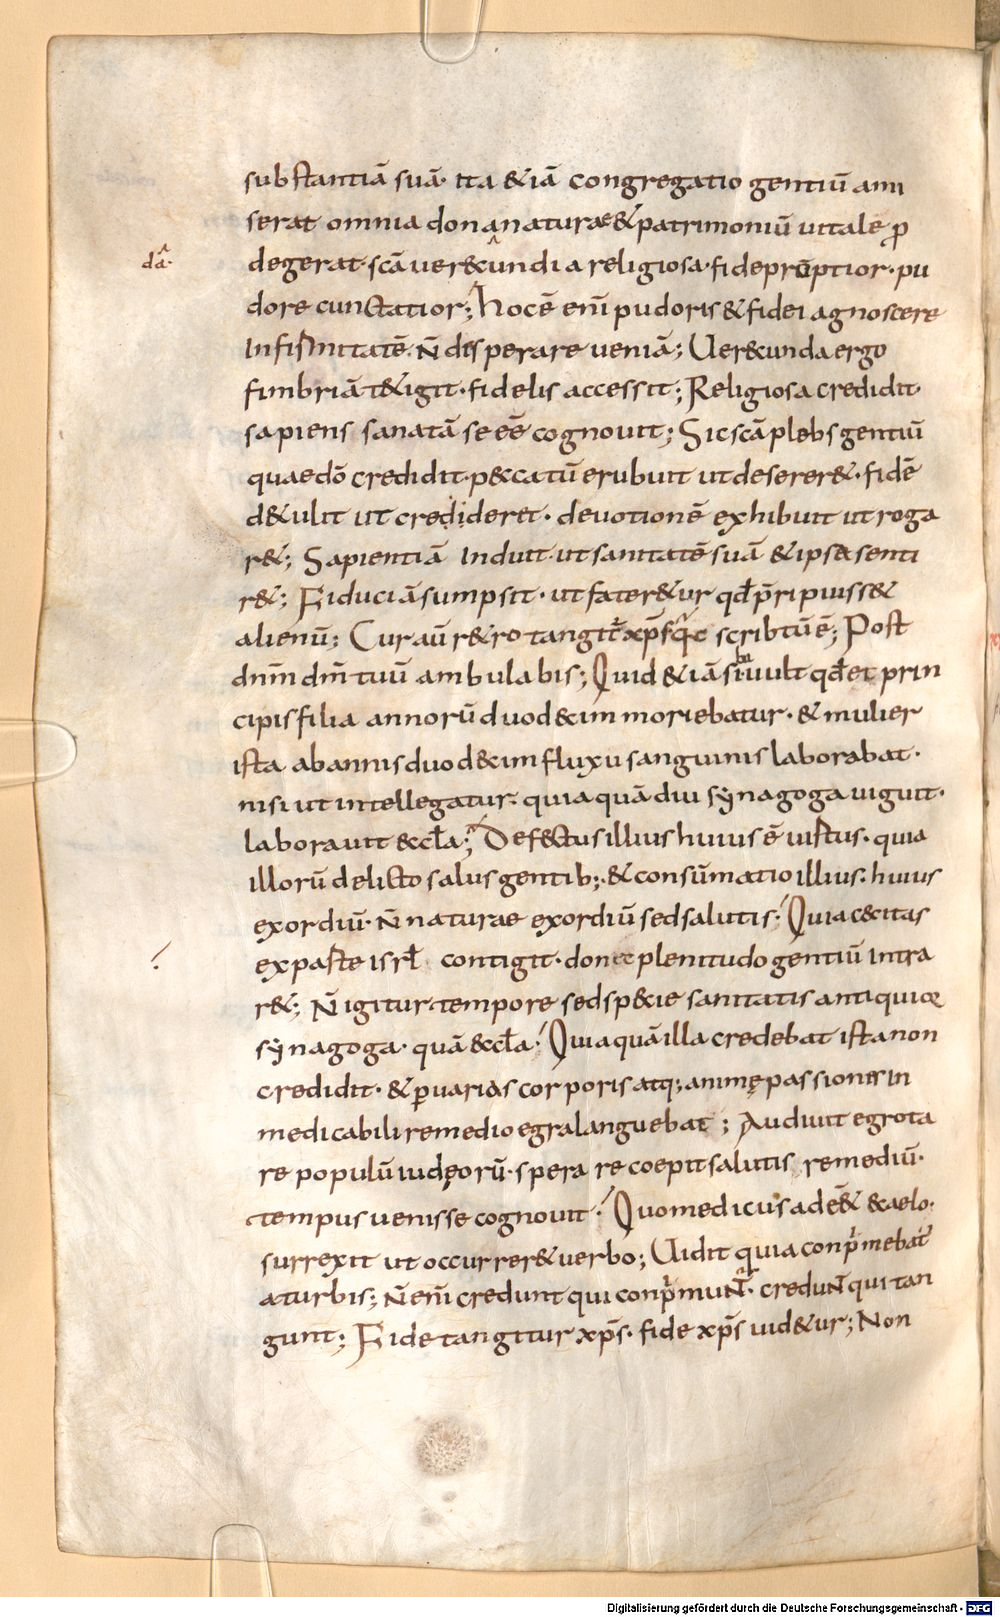 substantiā suā· ita &iā congregatio gentiū ami
serat omnia dona naturae & patrimoniū uitale p̄
dâ·
degerat· scā uer&cundia religiosa· fide prūptior· pu
dore cunctatior; hoc ē eni pudoris & fidei agnoscere
Infirmitatē· n̄ disperare ueniā; Uer&cunda ergo
fimbriā t&igit· fidelis accessit; Religiosa credidit·
sapiens sanatā se eē cognouit; Sic scā plebs gentiū
quae dō credidit· p&catū erubuit ut deserer&· fidē
d&ulit ut crederet· deuotionē exhibuit ut roga
r&; Sapientiā Induit· ut sanitatē suā & ipsa senti
r&; Fiduciā sumpsit· ut fater&ur qđ p̄ripuiss&
alienū; Cur aū r&ro tangit̄ xp̄s sic scribtū ē; Post
dn̄m dm̄ tuū ambulabis; Quid &iā sibi uult qđ et prin
cipis filia annorū duod&im moriebatur· & mulier
ista ab annis duod&im fluxu sanguinis laborabat·
nisi ut intellegatur· quia quādiu synagoga uiguit·
laborauit &cƚa; Defectus illius huius ē uirtus· quia
illorū delicto salus gentib;· & consūmatio illius· huius
exordiū· n̄ naturae exordiū sed salutis· Quia c&citas
?
ex parte isrƚ contigit· donec plenitudo gentiū intra
r&; N̄ igitur tempore sed sp&ie sanitatis antiquior
synagoga· quā &cƚa· Quia quā illa credebat ista non
credidit· & p uarias corporis atq; animę passiones in
medicabili remedio egra languebat; Audiuit egrota
re populū iudęorū· sperare coepit salutis remediū·
tempus uenisse cognouit· Quo medicus ade&̄ &caelo·
surrexit ut occurrer& uerbo; Uidit quia conp̄mebat̄
a turbis; N̄ eni credunt qui conp̄munt̄· credunt qui tan
gunt; Fide tangitur xp̄s· fide xp̄s uid&ur; Non
Digitalisierung gefördert durch die Deutsche Forschungsgemeinschaft - DFG